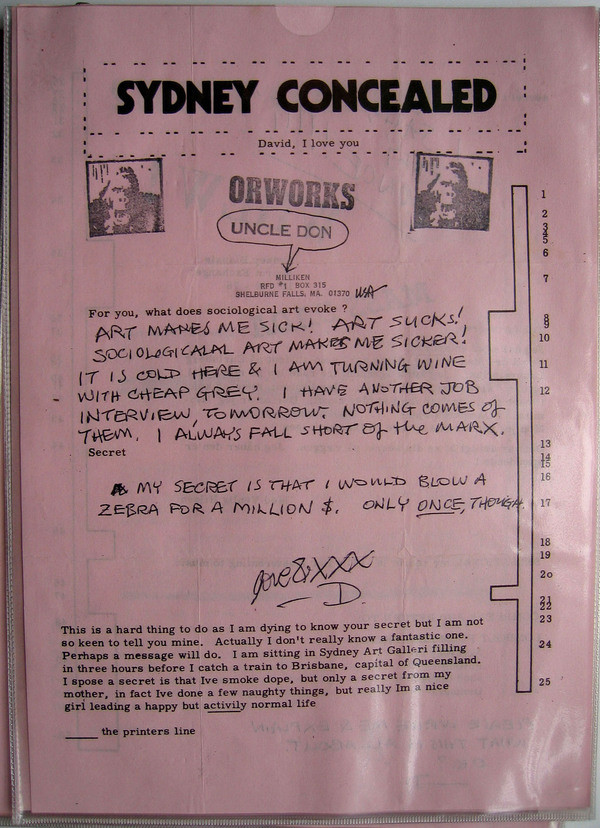 SYDNEY CONCEALED
David, I love you
ORWORKS
UNCLE DON
MILLIKEN
RFD #1 BOX 315
SHELBURNE FALLS, MA. 01370 USA
For you, what does sociological art evoke ?
ART MAKES ME SICK! ART SUCKS!
SOCIOLOGICALAL ART MAKES ME SICKER!
IT IS COLD HERE & I AM TURNING WINE
WITH CHEAP GREY. I HAVE ANOTHER JOB
INTERVIEW, TOMORROW. NOTHING COMES of
THEM. I ALWAYS FALL SHORT of the MARX.
Secret
MY SECRET IS THAT I WOULD BLOW A
ZEBRA FOR A MILLION $. ONLY ONCE, THOUGH.
love & XXX
D.
This is a hard thing to do as I am dying to know your secret but I am not
so keen to tell you mine. Actually I don't really know a fantastic one.
Perhaps a message will do. I am sitting in Sydney Art Galleri filling
in three hours before I catch a train to Brisbane, capital of Queensland.
I spose a secret is that Ive smoke dope, but only a secret from my
mother, in fact Ive done a few naughty things, but really Im a nice
girl leading a happy but activily normal life
____ the printers line
1
2
3
4
5
6
7
8
9
10
11
12
13
14
15
16
17
18
19
2o
21
22
23
24
25